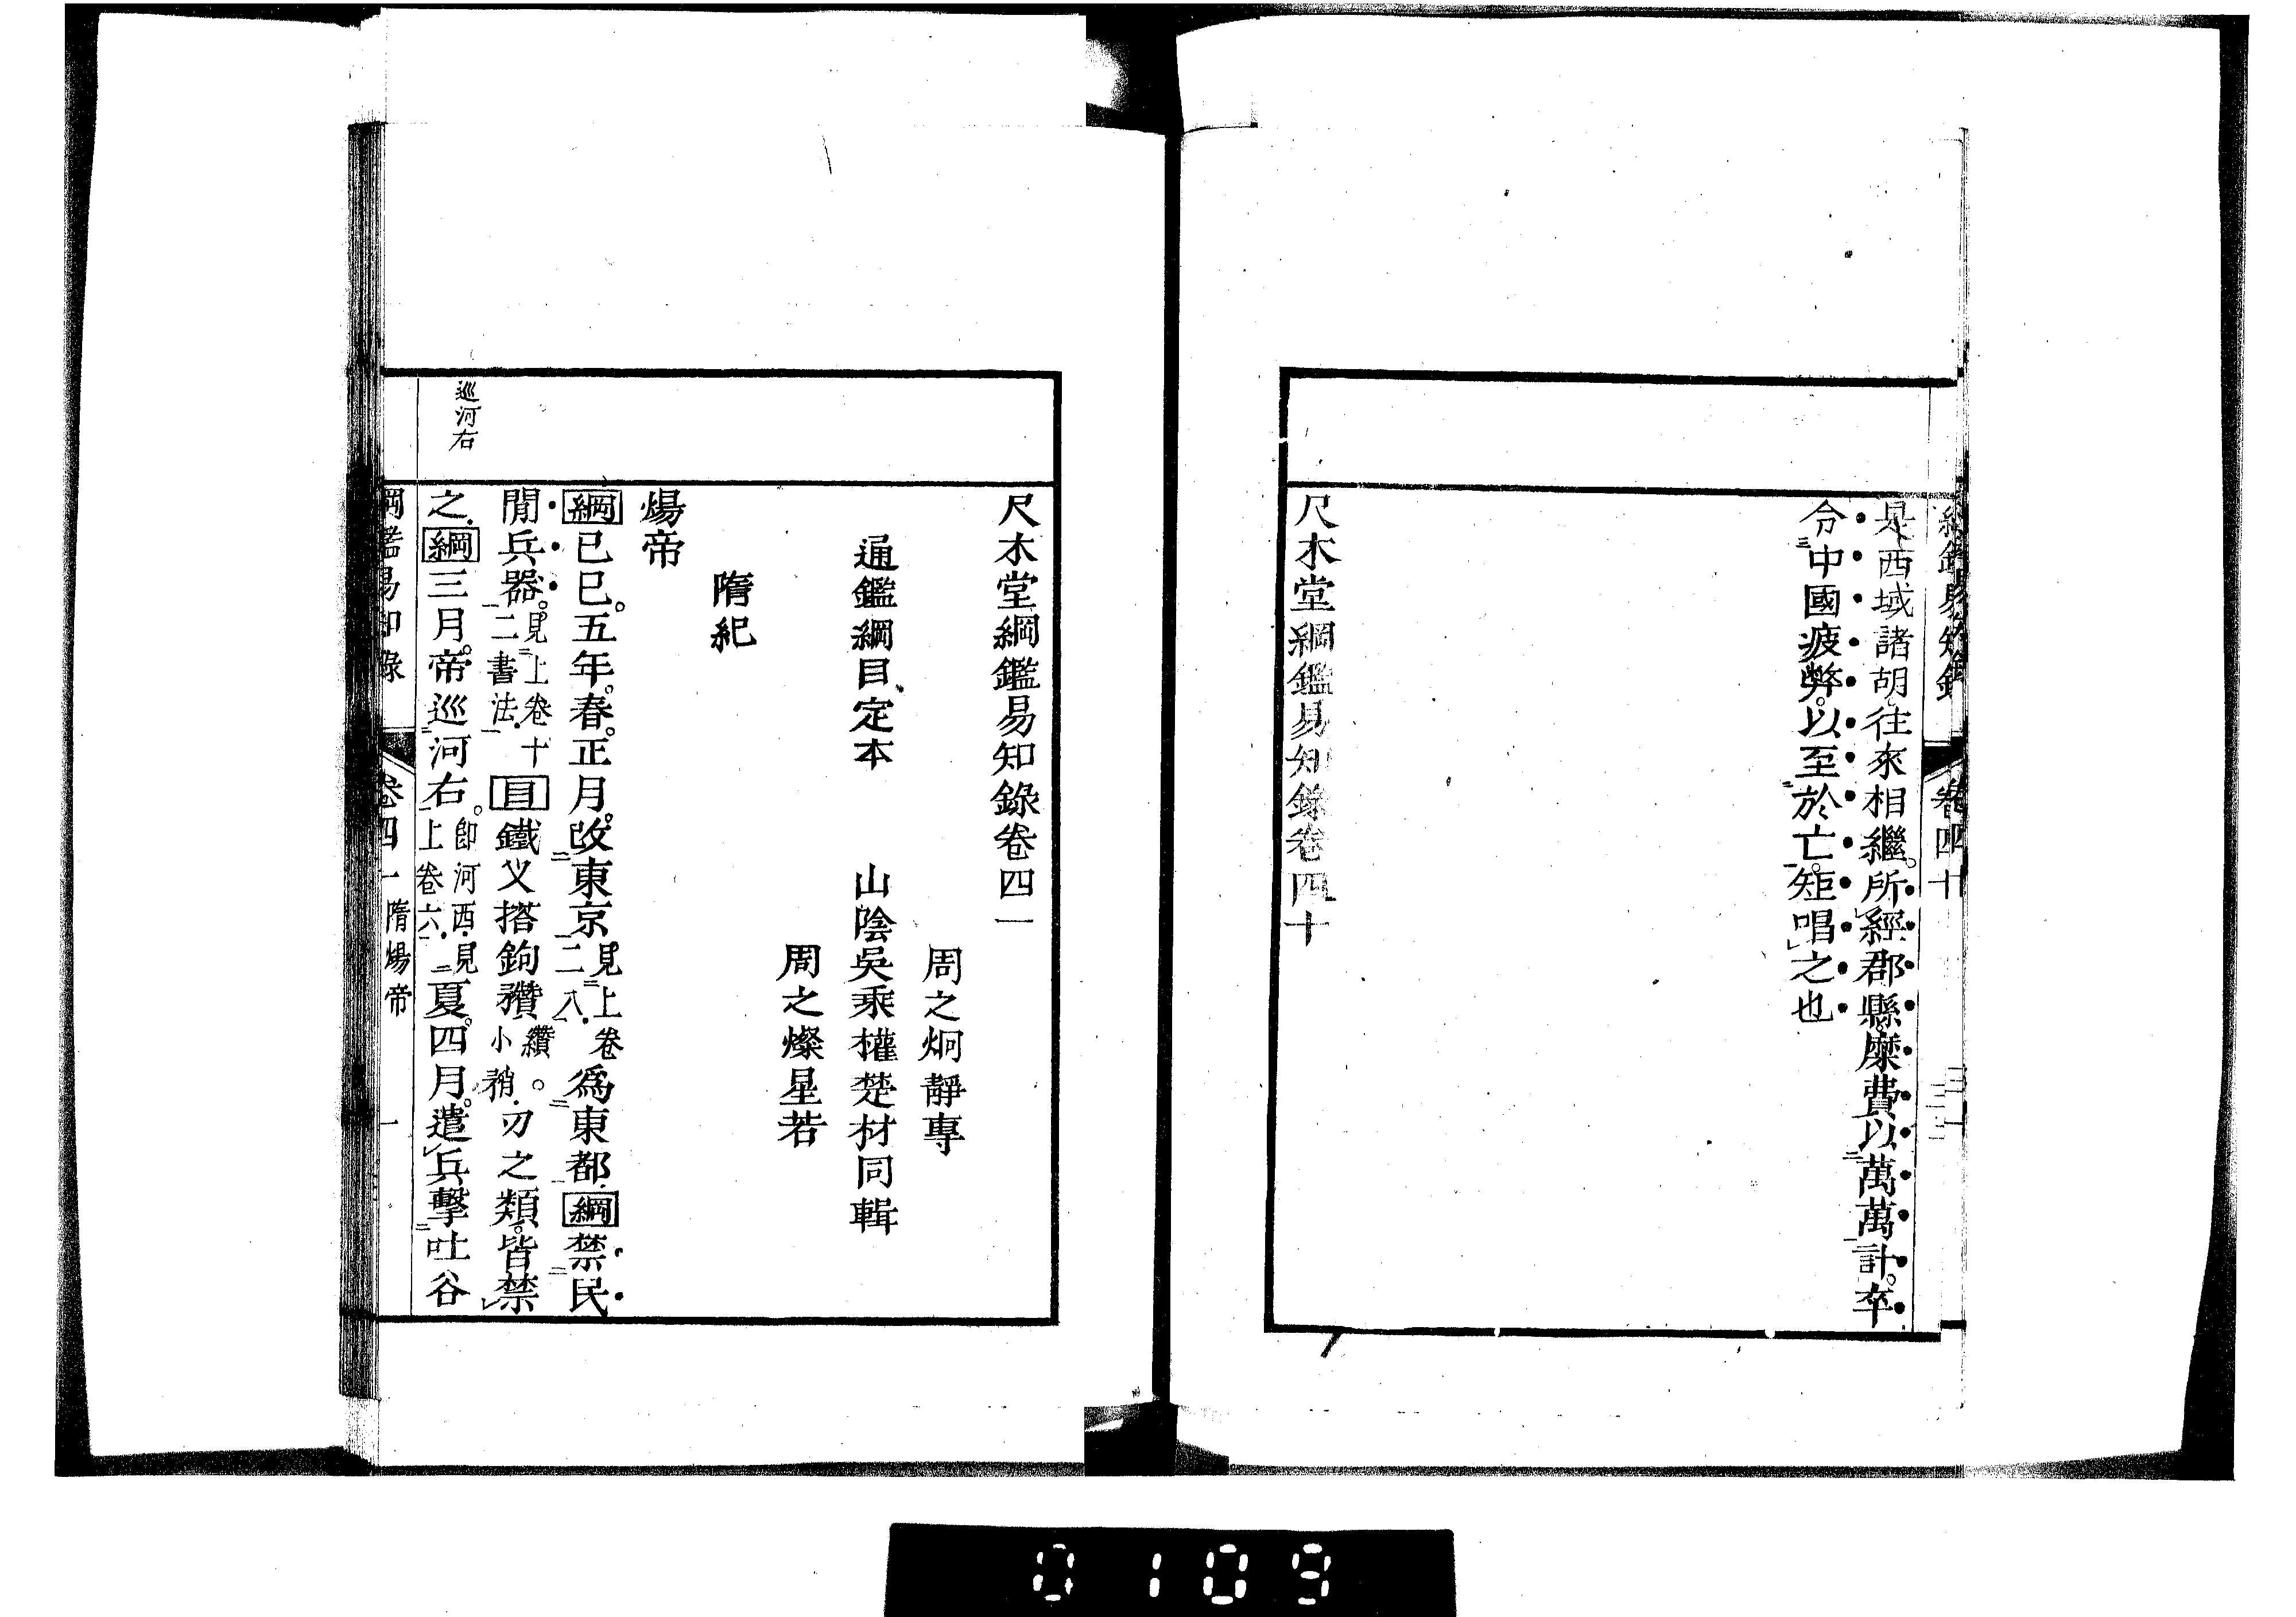 綱鑑易知錄 卷四十
是西域諸胡往來相繼。所經郡縣。糜費以萬萬計。卒
令中國疲弊。以至於亡。矩唱之也
尺木堂綱鑑易知錄卷四十
尺木堂綱鑑易知錄卷四一
周之炯靜專
通鑑綱目定本 山陰吳乘權楚材同輯
周之燦星若
隋紀
煬帝
綱己巳。五年。春。正月。改東京見上卷二八。爲東都綱禁民
閒兵器。見上卷十二書法。目鐵义搭鉤䂎纘。小矟。刃之類。皆禁
巡河右
之。綱三月。帝巡河右。卽河西。見上卷六。夏。四月。遣兵擊吐谷
綱鑑易知錄 卷四一 隋煬帝 一
0109